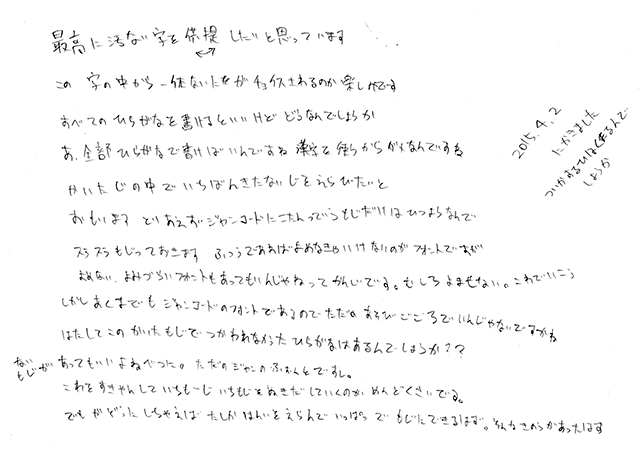 最高に汚ない字を保提したいと思っています
この字の中から一体ないたながチョイスされるのか楽しみです
すべてのひらがなを書けるといいけどどうなんでしょうか
あ、全部ひらがなで書けばいいんですね 漢字を使うからダメなんですね
かいたじの中でいちばんきたないじをえらびたいと
おもいます とりあえずジャンコードにこたんっていうもじだけはひつようなんで
スラスラもじっておきます ふつうであればよめなきゃいけないのがフォントですが
よめない、よみづらいフォントもあってもいんじゃねってかんじです。むしろよませない。これでいこう
しかしあくまでもジャンコードのフォントであるのでただのあそびごころでいんじゃないですかね
はたしてこのかいたもじでつかわれなかったひらがなはあるんでしょうか??
ないもじが
あってもいいよねべつに。ただのジャンのふぉんとですし。
これをすきゃんしていちもーじいちもじとぬきだしていくのがめんどくさいでる。
でもがぞうにしちゃえばたしかはんいをえらんでいっぱつでもじにできるはず。そんなきのうがあったはず
2015.4.2
にかきました
ついかするひはくるんで
しょうか